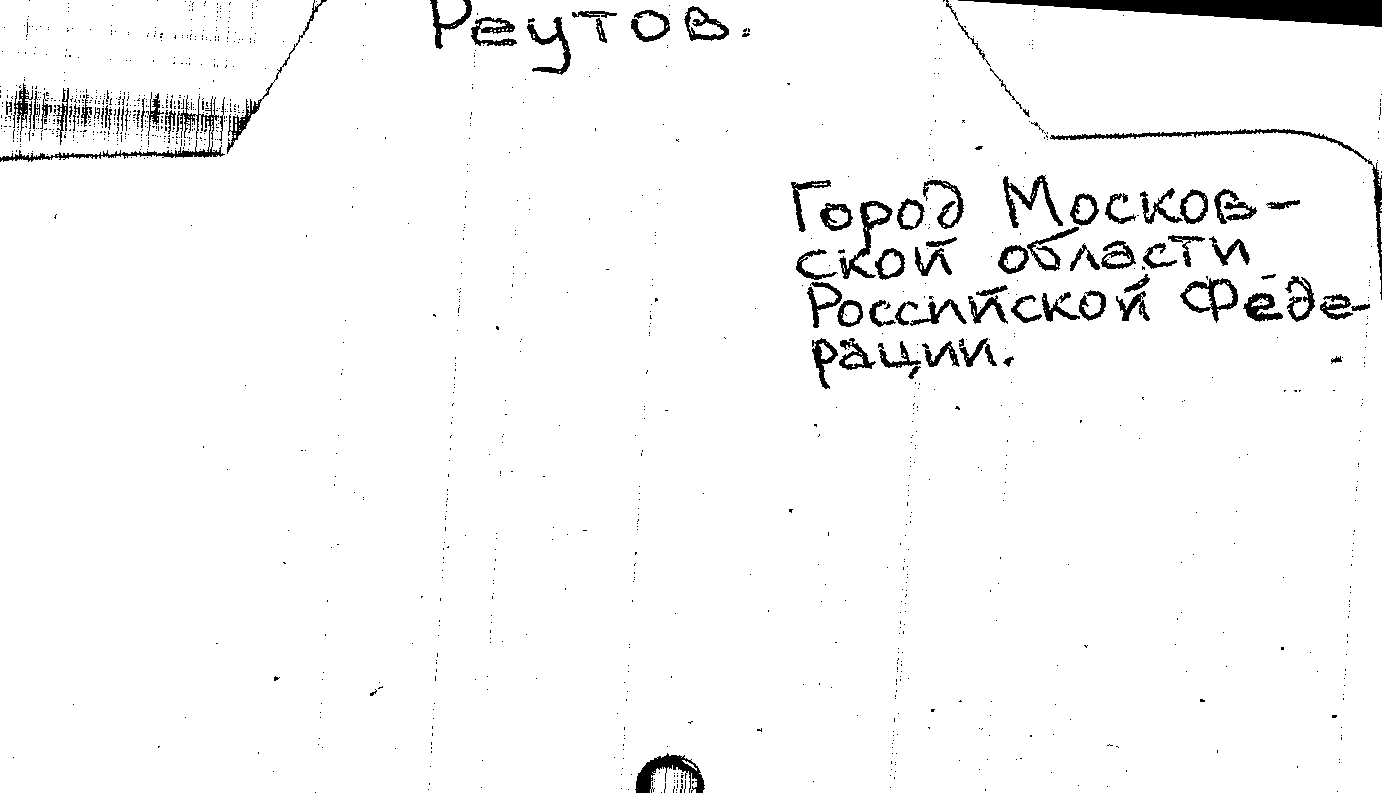 Реутов.
Город Москов-
ской области
Российской Феде-
рации.